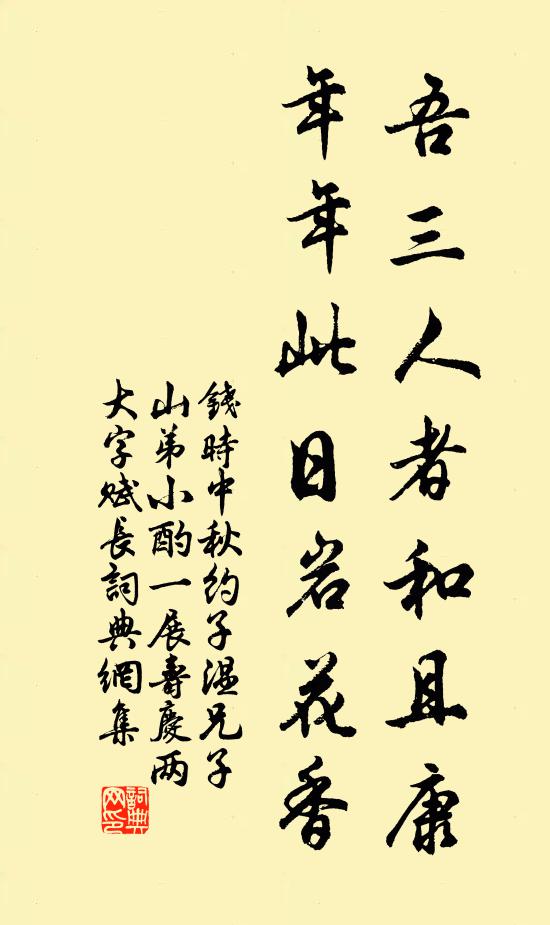 吾三人者和且康
年年此日岩花香
錢時中秋約子溫兄子
山弟小酌一展壽慶两
大字赋長詞典網集
詞典
网印